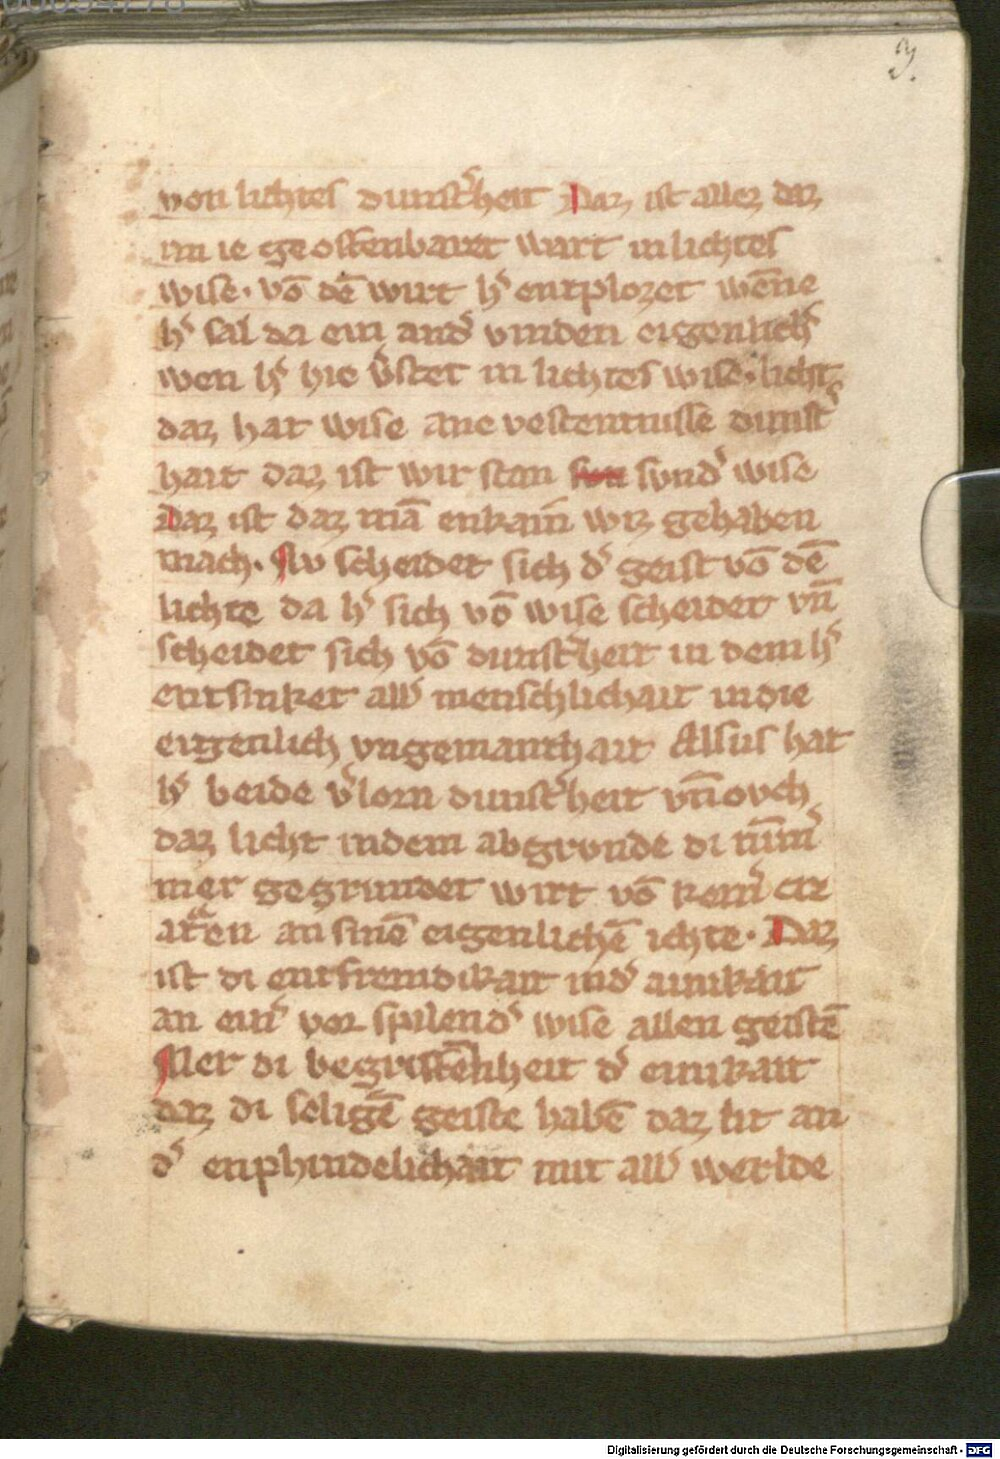 3.
von lichtes dunst͛heit Daz ist allez daz
im ie geoffenbaret wart in lichtes
wise · vō dē wirt h͛ entplozet wēne
h͛ sal da ein and͛ vinden eigenlich͛
wen h͛ hie v͛stet in lichtes wise · licht
daz hat wise ane vestentnisse dunst͛
hait daz ist wir stan sund͛ wise
Daz ist daz mā enkain wiz gehaben
mach · Nv scheidet sich d͛ geist vō dē
lichte da h͛ sich vō wise scheidet vn̄
scheidet sich vō dunst͛heit in dem h͛
entsinket all͛ menschlichait in die
eigenlich vngenanthait Alsus hat
h͛ beide v͛lorn dunst͛heit vn̄ ovch
daz licht in dem abgrvnde di
mer gegrundet wirt vō cre
an sinē eigenlichē ichte · Daz
ist di entfremdikait ind͛ ainikait
an ein͛ vor spilend͛ wise allen geistē
Mer di begriffēnheit d͛ einikait
daz di seligē geiste habē daz lit an
d͛ enphindelichait mit all͛ werlde
Digitalisierung gefördert durch die Deutsche Forschungsgemeinschaft - DFG